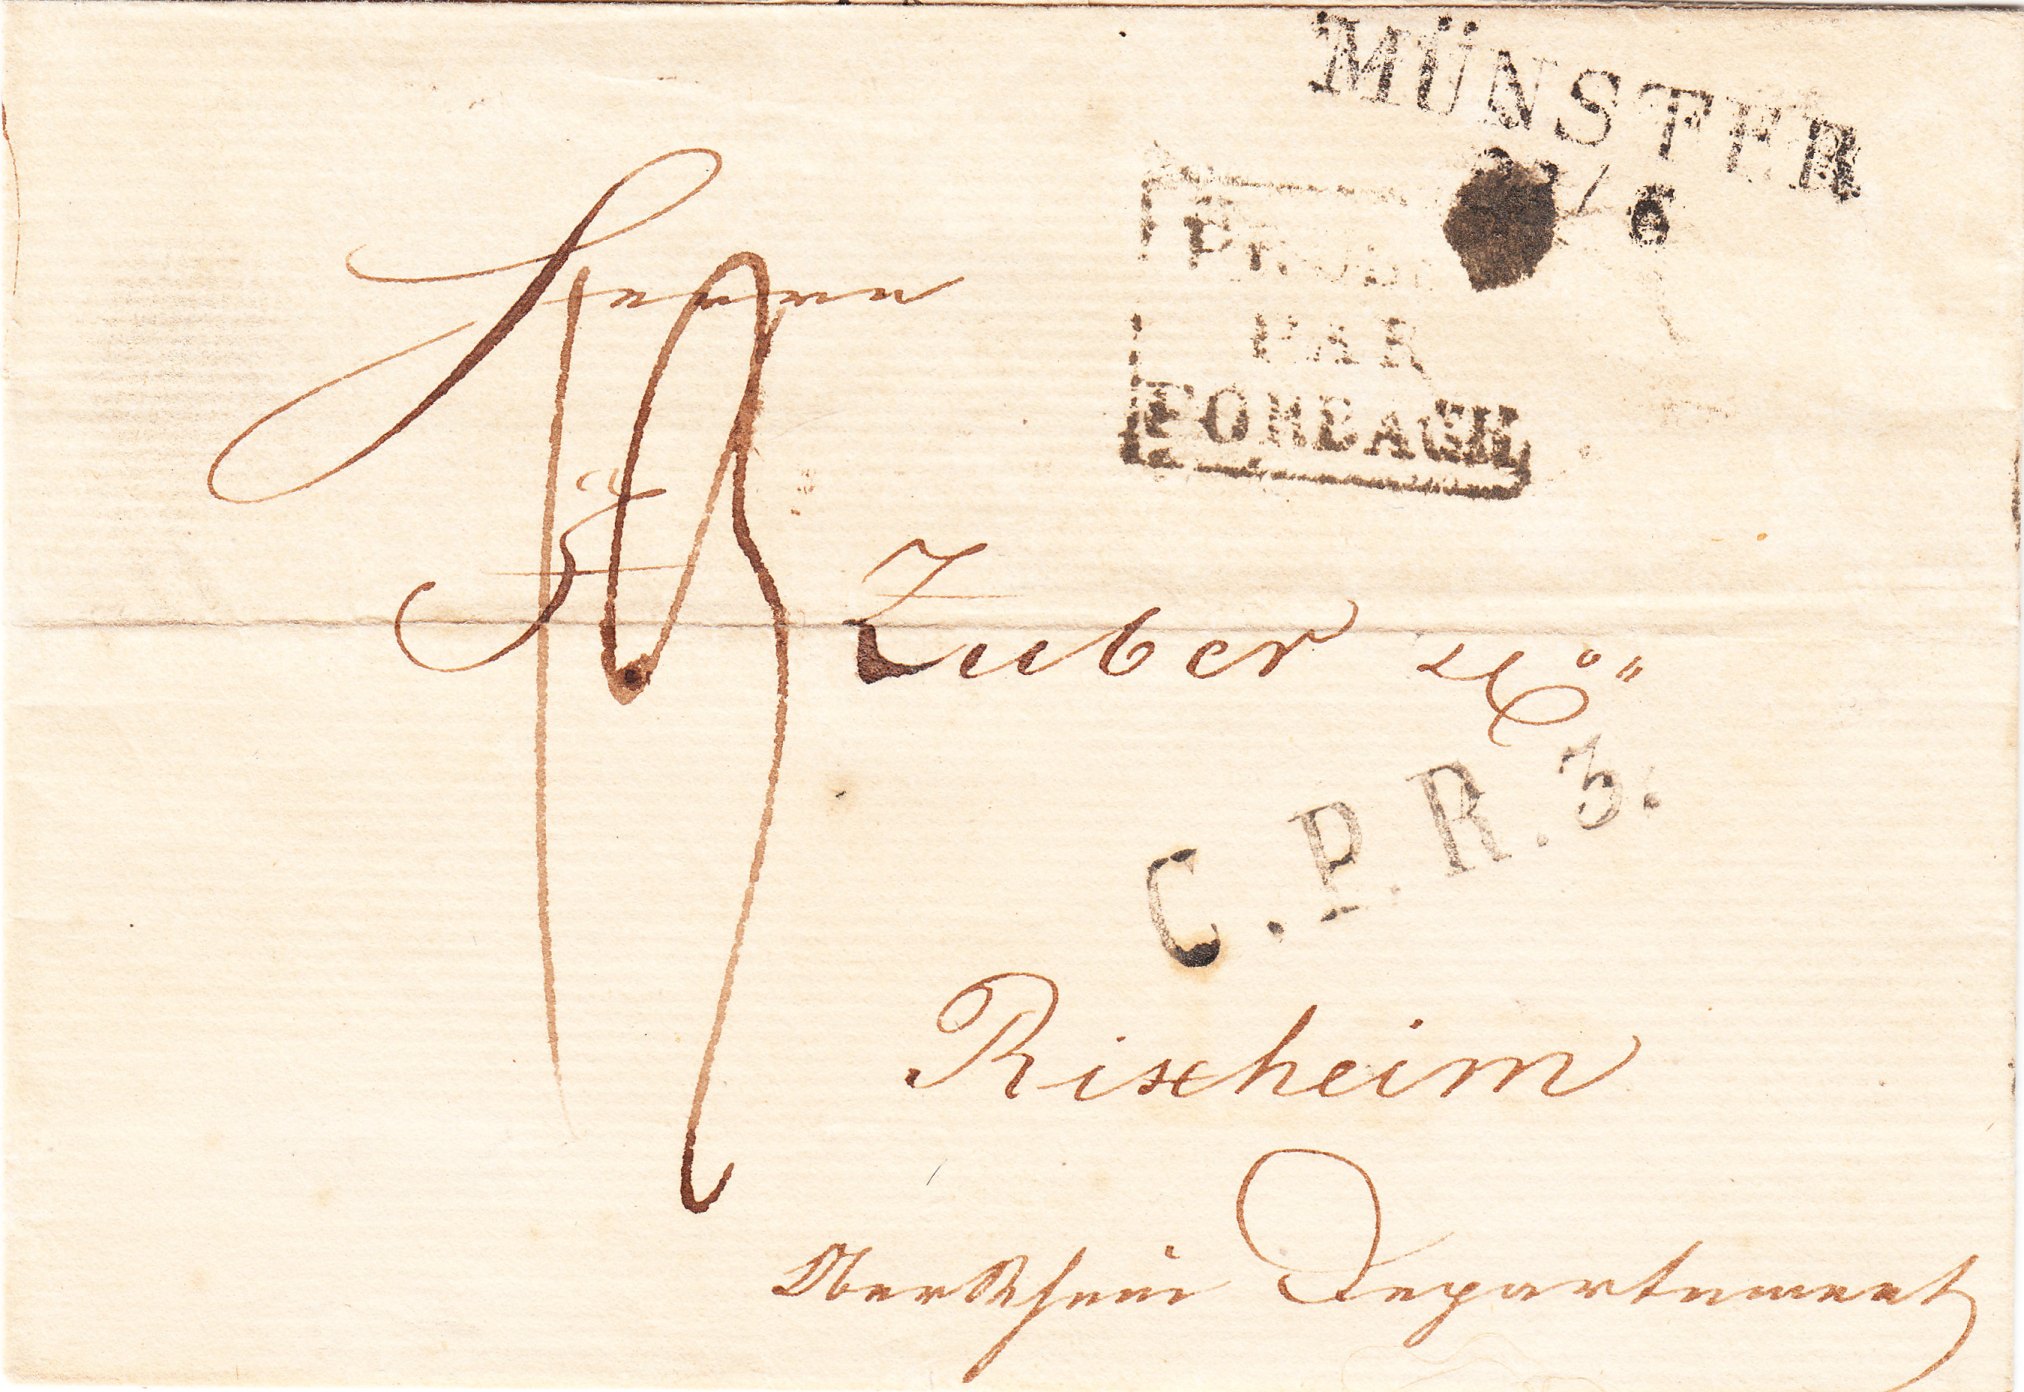 MÜNSTER
6
PRUSSE
PAR
FORBACH
Herrn
Zuber &
C.P.R.3.
Rixheim
OberRhein Departement